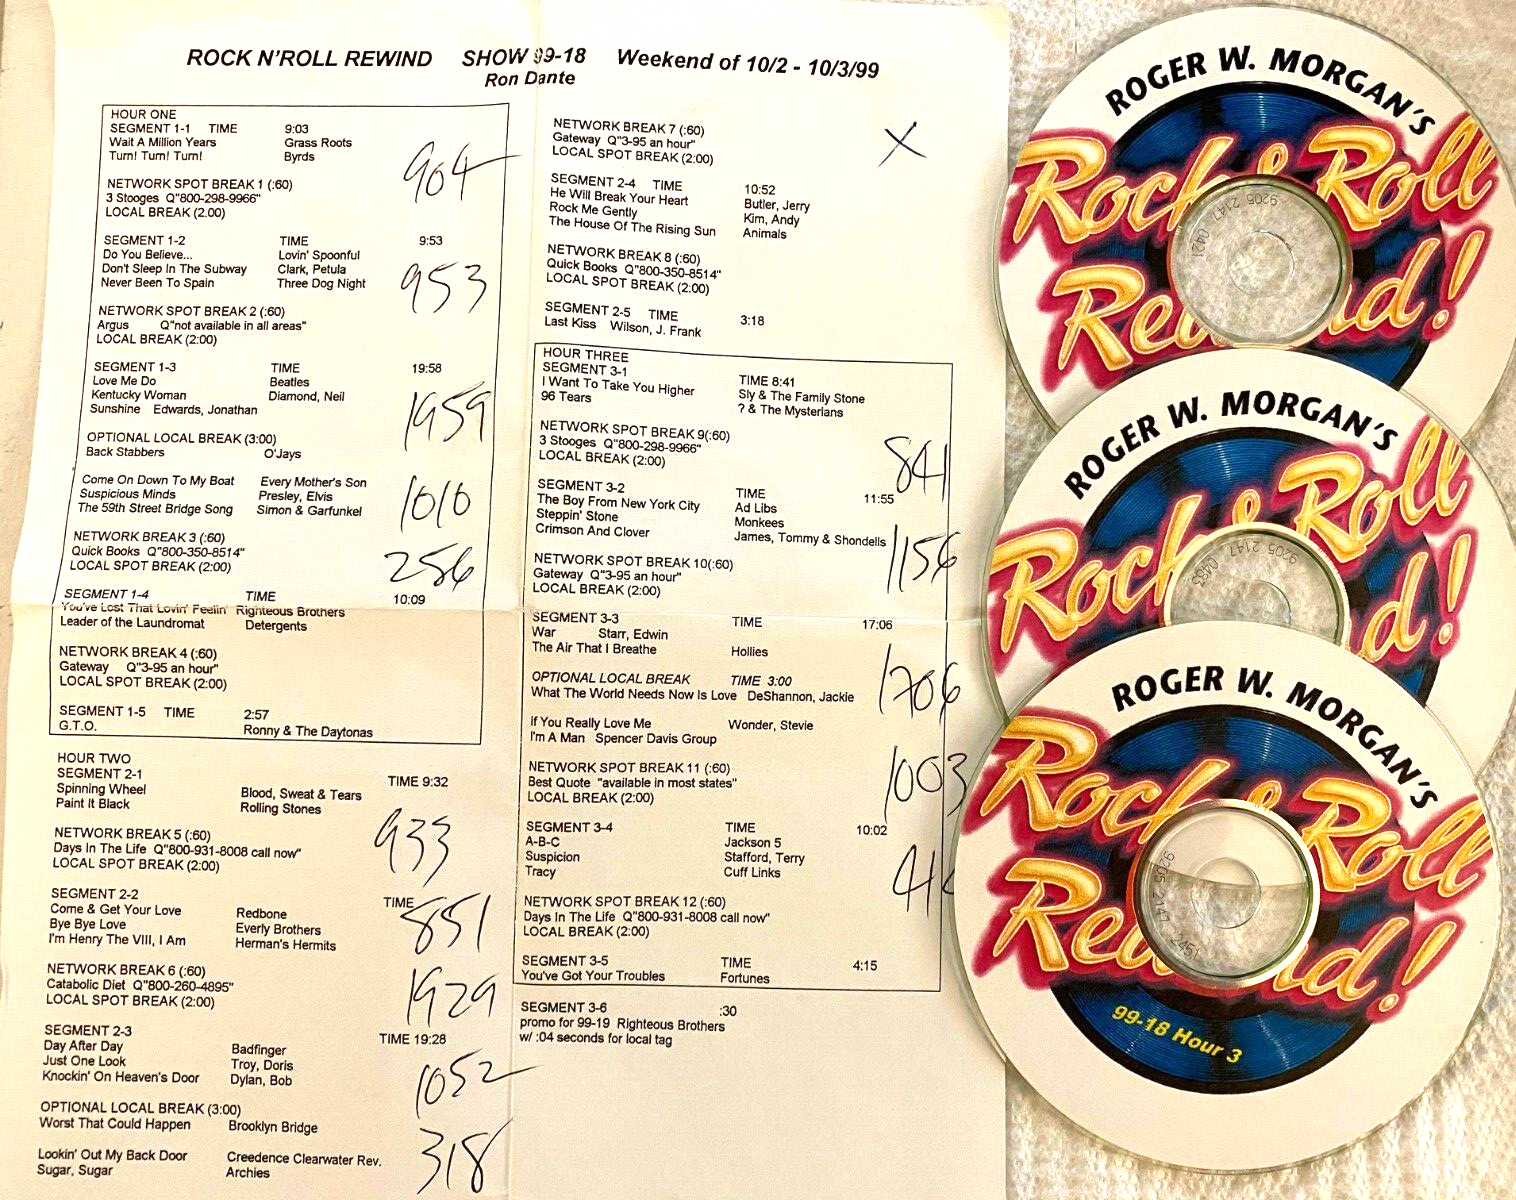 ROCK N'ROLL REWIND SHOW 99-18 Weekend of 10/2 - 10/3/99
Ron Dante
HOUR ONE
SEGMENT 1-1 TIME 9:03
Wait A Million Years Grass Roots
Turn! Turn! Turn! Byrds
904
NETWORK SPOT BREAK 1 (:60)
3 Stooges Q"800-298-9966"
LOCAL BREAK (2.00)
SEGMENT 1-2 TIME 9:53
Do You Believe... Lovin' Spoonful
Don't Sleep In The Subway Clark, Petula
Never Been To Spain Three Dog Night
953
NETWORK SPOT BREAK 2 (:60)
Argus Q"not available in all areas"
LOCAL BREAK (2:00)
SEGMENT 1-3 TIME 19:58
Love Me Do Beatles
Kentucky Woman Diamond, Neil
Sunshine Edwards, Jonathan
1959
OPTIONAL LOCAL BREAK (3:00)
Back Stabbers O'Jays
Come On Down To My Boat Every Mother's Son
Suspicious Minds Presley, Elvis
The 59th Street Bridge Song Simon & Garfunkel
1010
NETWORK BREAK 3 (:60)
Quick Books Q"800-350-8514"
LOCAL SPOT BREAK (2:00)
256
SEGMENT 1-4 TIME 10:09
You've Lost That Lovin' Feelin' Righteous Brothers
Leader of the Laundromat Detergents
NETWORK BREAK 4 (:60)
Gateway Q"3-95 an hour"
LOCAL SPOT BREAK (2:00)
SEGMENT 1-5 TIME 2:57
G.T.O. Ronny & The Daytonas
HOUR TWO
SEGMENT 2-1 TIME 9:32
Spinning Wheel Blood, Sweat & Tears
Paint It Black Rolling Stones
933
NETWORK BREAK 5 (:60)
Days In The Life Q"800-931-8008 call now"
LOCAL SPOT BREAK (2:00)
SEGMENT 2-2 TIME
Come & Get Your Love Redbone
Bye Bye Love Everly Brothers
I'm Henry The VIII, I Am Herman's Hermits
851
NETWORK BREAK 6 (:60)
Catabolic Diet Q"800-260-4895"
LOCAL SPOT BREAK (2:00)
1929
SEGMENT 2-3 TIME 19:28
Day After Day Badfinger
Just One Look Troy, Doris
Knockin' On Heaven's Door Dylan, Bob
1052
OPTIONAL LOCAL BREAK (3:00)
Worst That Could Happen Brooklyn Bridge
Lookin' Out My Back Door Creedence Clearwater Rev.
Sugar, Sugar Archies
318
NETWORK BREAK 7 (:60)
Gateway Q"3-95 an hour"
LOCAL SPOT BREAK (2:00)
X
SEGMENT 2-4 TIME 10:52
He Will Break Your Heart Butler, Jerry
Rock Me Gently Kim, Andy
The House Of The Rising Sun Animals
NETWORK BREAK 8 (:60)
Quick Books Q"800-350-8514"
LOCAL SPOT BREAK (2:00)
SEGMENT 2-5 TIME 3:18
Last Kiss Wilson, J. Frank
HOUR THREE
SEGMENT 3-1 TIME 8:41
I Want To Take You Higher Sly & The Family Stone
96 Tears ? & The Mysterians
NETWORK SPOT BREAK 9(:60)
3 Stooges Q"800-298-9966"
LOCAL BREAK (2:00)
841
SEGMENT 3-2 TIME 11:55
The Boy From New York City Ad Libs
Steppin' Stone Monkees
Crimson And Clover James, Tommy & Shondells
1156
NETWORK SPOT BREAK 10(:60)
Gateway Q"3-95 an hour"
LOCAL BREAK (2:00)
SEGMENT 3-3 TIME 17:06
War Starr, Edwin
The Air That I Breathe Hollies
1706
OPTIONAL LOCAL BREAK TIME 3:00
What The World Needs Now Is Love DeShannon, Jackie
If You Really Love Me Wonder, Stevie
I'm A Man Spencer Davis Group
NETWORK SPOT BREAK 11 (:60)
Best Quote "available in most states"
LOCAL BREAK (2:00)
1003
SEGMENT 3-4 TIME 10:02
A-B-C Jackson 5
Suspicion Stafford, Terry
Tracy Cuff Links
NETWORK SPOT BREAK 12 (:60)
Days In The Life Q"800-931-8008 call now"
LOCAL BREAK (2:00)
SEGMENT 3-5 TIME 4:15
You've Got Your Troubles Fortunes
SEGMENT 3-6 :30
promo for 99-19 Righteous Brothers
w/ :04 seconds for local tag
ROGER W. MORGAN'S
Rock & Roll
Rewind!
9205 2147 0421
ROGER W. MORGAN'S
Rock & Roll
9205 2147
ROGER W. MORGAN'S
Rock & Roll
Rewind!
9205 2147 2451
99-18 Hour 3